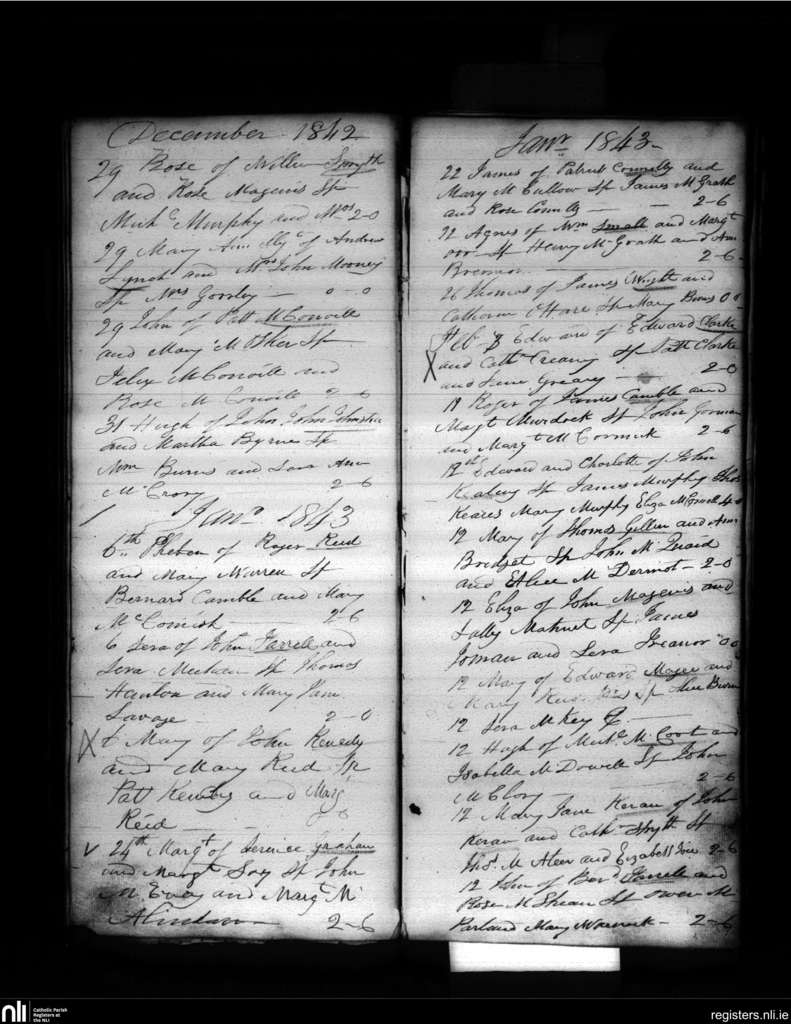 December 1842
29 Rose of Willm Smyth
and Rose Magenis Sp
Michl Murphy and Mrs 2-0
29 Mary Ann of Andrew
Lynch and Mrs John Mooney
Sp Mrs Gorsley — 0-0
29 John of Patt McConville
and Mary Sp
Felix McConville and
Rose McConville 2-6
31 Hugh of John John Johnston
and Martha Byrne Sp
Wm Burns and Sara Ann
McCrory — 2-6
Janr. 1843
6th Pheben of Roger Reed
and Mary Warren Sp
Bernard Camble and Mary
McComish — 2-6
6 Sera of John Farrell and
Sera Meehan Sp Thomas
Hanlon and Mary Jane
Savage — 2-0
Mary of John Kenedy
and Mary Reed Sp
Patt and Marg
Reid
24th Margt of Terence Graham
and Margt Sp John
McEvoy and Margt M
2-6
Janr 1843
22 James of Patrick Connolly and
Mary McCullow Sp James McGrath
and Rose Connolly — 2-6
22 Agnes of Wm Small and Margt
Sp Henry McGrath and Ann
Brennon — 2-6
26 Thomas of James Wright and
Catherine OHare Sp Mary Burns 0 0
Feb 8 Edward of Edward Clarke
and Cathn Creany Sp Patt Clarke
and Jane Greany — 2-0
19 Roger of James Camble and
Magt Murdock Sp John Gorman
and Margt McCormick 2-6
12th Edward and Charlotte of John
Keating Sp James Murphy Thos
Keares Mary Murphy Eliza McConnell 4-0
12 Mary of Thomas Gillen and Ann
Bridget Sp John McQuaid
and Ellice McDermot — 2-0
12 Eliza of John Magenis and
Sally Sp James
and Sera Treanor 0 0
12 Mary of Edward Magee and
Mary Sp Alice Burns
12 Sera McKey
12 Hugh of Michl McCoot and
Isabella McDowell Sp John
McClory — 2-6
12 Mary Jane Keran of John
Keran and Cath Smyth Sp
Thos McAleer and Elizabeth 2-6
12 John of Bernd Farrell and
Rose McShean Sp Owen M
Parland Mary Warnock — 2-6
nli
Catholic Parish
Registers at
the NLI
registers.nli.ie